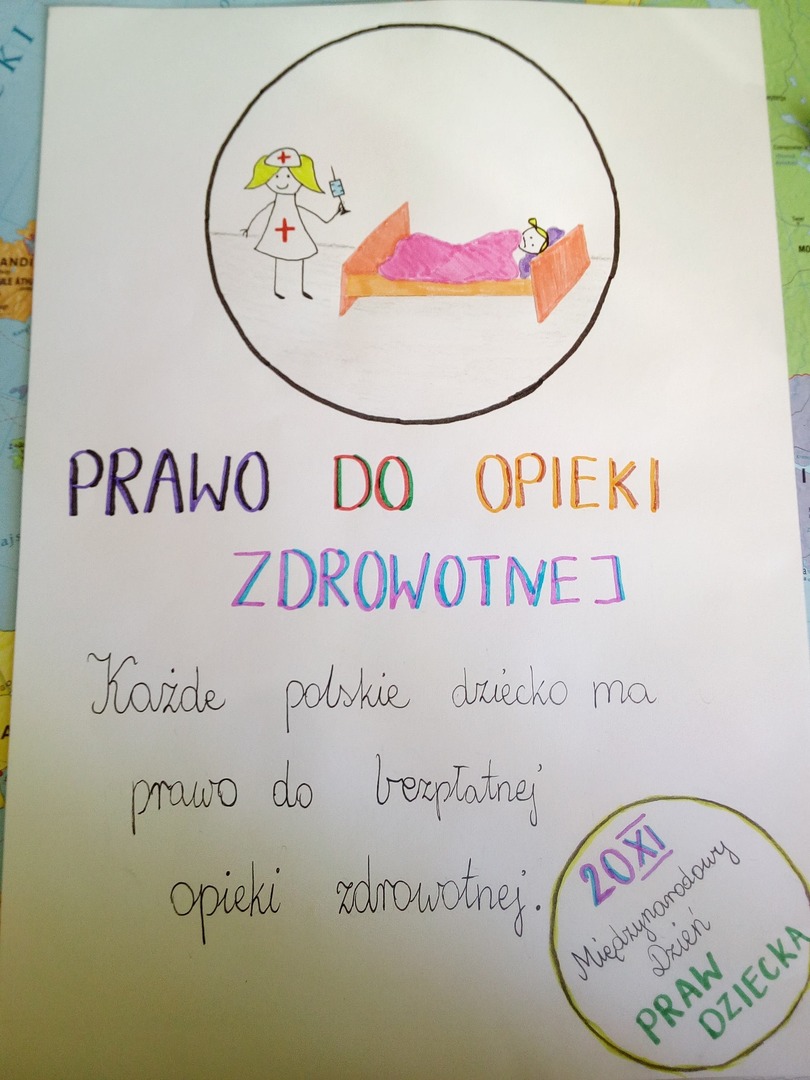 PRAWO DO OPIEKI
ZDROWOTNEJ
Każde polskie dziecko ma
prawo do bezpłatnej
opieki zdrowotnej.
20 XI
Międzynarodowy
Dzień
PRAW
DZIECKA